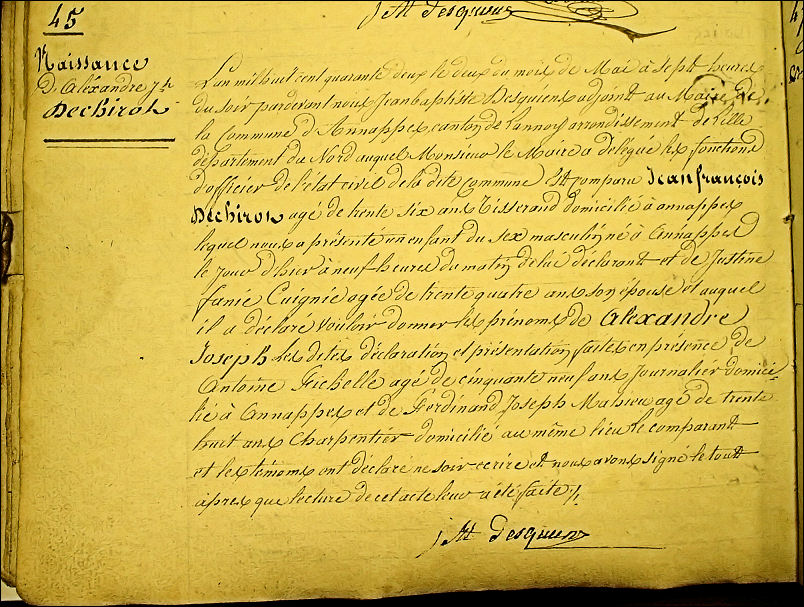 J Bte Desquiens
45
Naissance
D'Alexandre Jh
Dechirot
L'an mil huit cent quarante deux le deux du mois de Mai à sept heures
du soir pardevant nous Jeanbaptiste Desquiens adjoint au Maire de
la Commune d'Annappes, canton de Lannoy arrondissement de Lille
département du Nord auquel Monsieur le Maire a délégué les fonctions
d'officier de l'état civil de la dite commune Est comparu Jeanfrançois
Dechirot agé de trente six ans Tisserand domicilié à annappes
lequel nous a présenté un enfant du sex masculin, né à Annappes
le jour d'hier à neuf heures du matin, de lui déclarant et de Justine
Cuignié agée de trente quatre ans son épouse et auquel
il a déclaré vouloir donner les prénoms de Alexandre
Joseph les dites déclaration et présentation faites en présence de
Antoine Fichelle agé de cinquante neuf ans Journalier domici-
lié à Annappes et de Ferdinand Joseph Mahieu agé de trente
huit ans Charpentier domicilié au même lieu le comparant
et les témoins ont déclaré ne écrire et nous avons signé le tout
après que lecture de cet acte leur a été faite
J Bte Desquiens